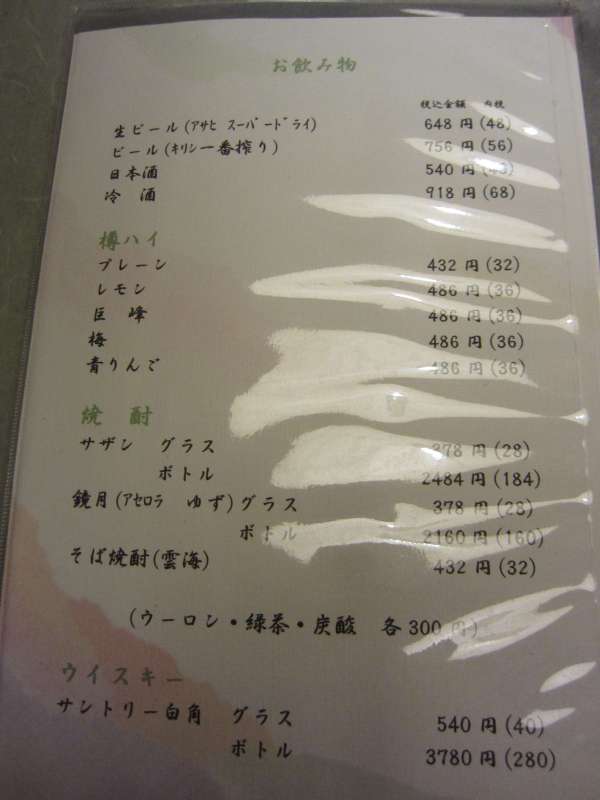 お飲み物
税込金額 内税
生ビール(アサヒ スーパードライ) 648 円 (48)
ビール(キリン一番搾り) 756 円 (56)
日本酒 540 円
冷 酒 918 円 (68)
樽ハイ
プレーン 432 円 (32)
レモン 486 円 (36)
巨 峰 486 円 (36)
梅 486 円 (36)
青りんご 486 円 (36)
焼 酎
サザン グラス 378 円 (28)
ボトル 2484 円 (184)
鏡月(アセロラ ゆず)グラス 378 円 (28)
ボトル 2160 円 (160)
そば焼酎(雲海) 432 円 (32)
(ウーロン・緑茶・炭酸 各300 円)
ウイスキー
サントリー白角 グラス 540 円 (40)
ボトル 3780 円 (280)